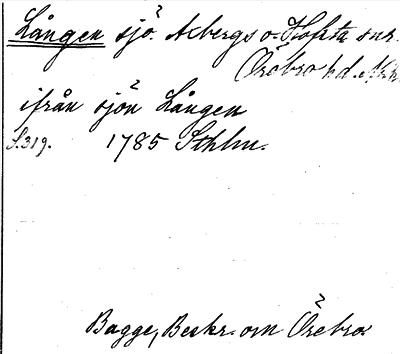 Lången sjö. Axbergs o. Hofsta snr.
Örebro hd. Nke
ifrån sjön Lången
S. 319. 1785 Sthlm.
Bagge, Beskr. om Örebro